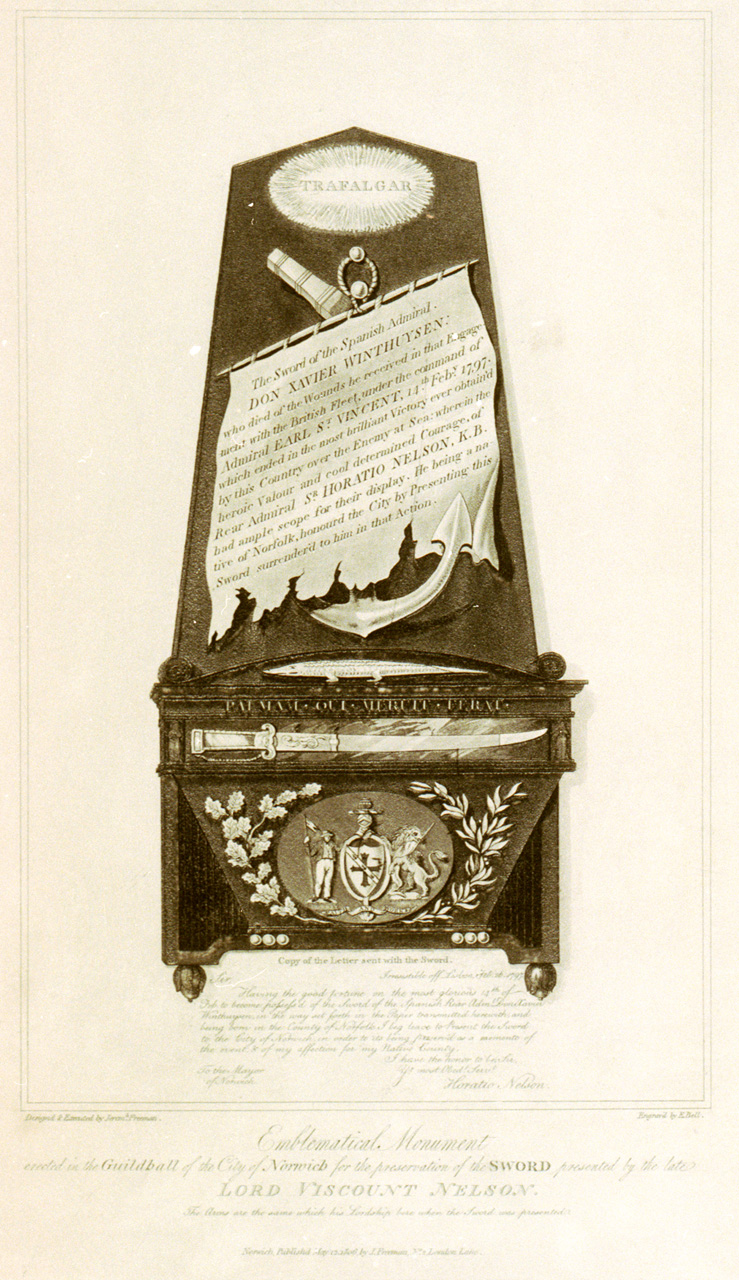 TRAFALGAR
The Sword of the Spanish Admiral.
DON XAVIER WINTHUYSEN:
who died of the Wounds he received in that Engage
ment with the British Fleet, under the command of
Admiral EARL St VINCENT, 14th Feby 1797.
which ended in the most brilliant Victory ever obtain'd
by this Country over the Enemy at Sea: wherein the
heroic Valour and cool determined Courage, of
Rear Admiral Sr HORATIO NELSON, K.B.
had ample scope for their display. He being a na
tive of Norfolk, honour'd the City by Presenting this
Sword surrender'd to him in that Action.
PALMAM · QUI · MERUIT · FERAT ·
Copy of the Letter sent with the Sword.
Sir Irresistible off Lisbon, Feb. 1797
Having the good fortune on the most glorious 14th of
Feb. to become possess'd of the Sword of the Spanish Rear Adml. Don Xavier
Winthuysen, in the way set forth in the Paper transmitted herewith and
being born in the County of Norfolk, I beg leave to Present the Sword
to the City of Norwich in order to its being preserved as a memento of
the event, & of my affection for my Native County.
I have the honor to be, Sir,
To the Mayor Yr most Obedt Servt
of Norwich. Horatio Nelson.
Designed & Executed by Jeremh. Freeman. Engrav'd by E. Bell.
Emblematical Monument
erected in the Guildhall of the City of Norwich for the preservation of the SWORD presented by the late
LORD VISCOUNT NELSON.
The Arms are the same which his Lordship bore when the Sword was presented.
Norwich, Published May 12 1806 by J. Freeman, No. 2, London Lane.